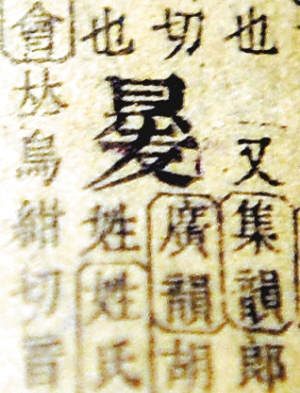 也
又集韻郎
切
廣韻胡
也
姓姓氏
會
烏紺切